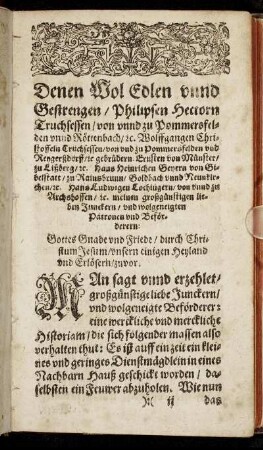 Denen Wol Edlen vnnd
Gestrengen / Philipsen Hectorn
Truchsessen / von vnnd zu Pommersfel-
den vnnd Röttenbach / ꝛc. Wolffgangen Chri-
stoffeln Truchsessen / von vnd zu Pommersfelden vnd
Rengerßdorff / ꝛc gebrüdern. Ernsten von Münster /
zu Lißberg / ꝛc. Hans Heinrichen Geyern von Gi-
belstatt / zu Reinsbrunn / Goldbach vnnd Neunkir-
chen / ꝛc. Hans Ludwigen Lochingern / von vnnd zu
Archshoffen / ꝛc. meinen großgünstigen lie-
ben Junckern / vnd wolgeneygten
Patronen vnd Beför-
derern:
Gottes Gnade vnd Friede / durch Chri-
stum Jesum / vnsern einigen Heyland
vnd Erlösern / zuvor.
MAn sagt vnnd erzehlet /
großgünstige liebe Junckern /
vnd wolgeneygte Beförderer:
eine werckliche vnd merckliche
Historiam / die sich folgender massen also
verhalten thut: Es ist auff ein zeit ein klei-
nes vnd geringes Dienstmägdlein in eines
Nachbarn Hauß geschickt worden / da-
selbsten ein Feuwer abzuholen. Wie nun
ij das